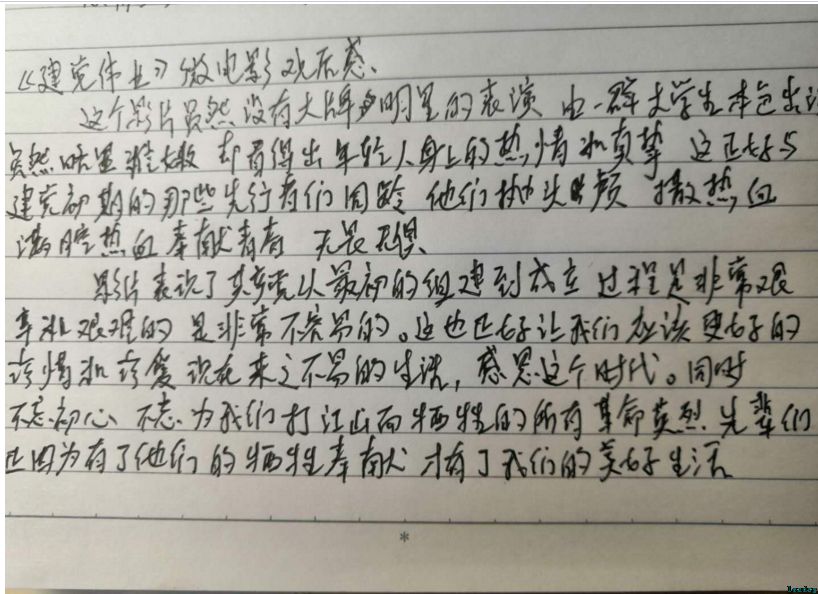 《建党伟业》微电影观后感、
这个影片虽然没有大牌明星的表演 由一群大学生本色出
虽然略显稚嫩 却看得出年轻人身上的热情和真挚 这正好与
建党初期的那些先行者们同龄 他们抛头颅 撒热血
满腔热血奉献青春 无畏无惧
影片表现了共产党从最初的组建到成立 过程是非常艰
辛和艰难的 是非常不容易的。这也正好让我们应该更好的
珍惜和珍爱现在来之不易的生活，感恩这个时代。同时
不忘初心 不忘为我们打江山而牺牲的所有革命英烈先辈们
正因为有了他们的牺牲奉献 才有了我们的美好生活
*